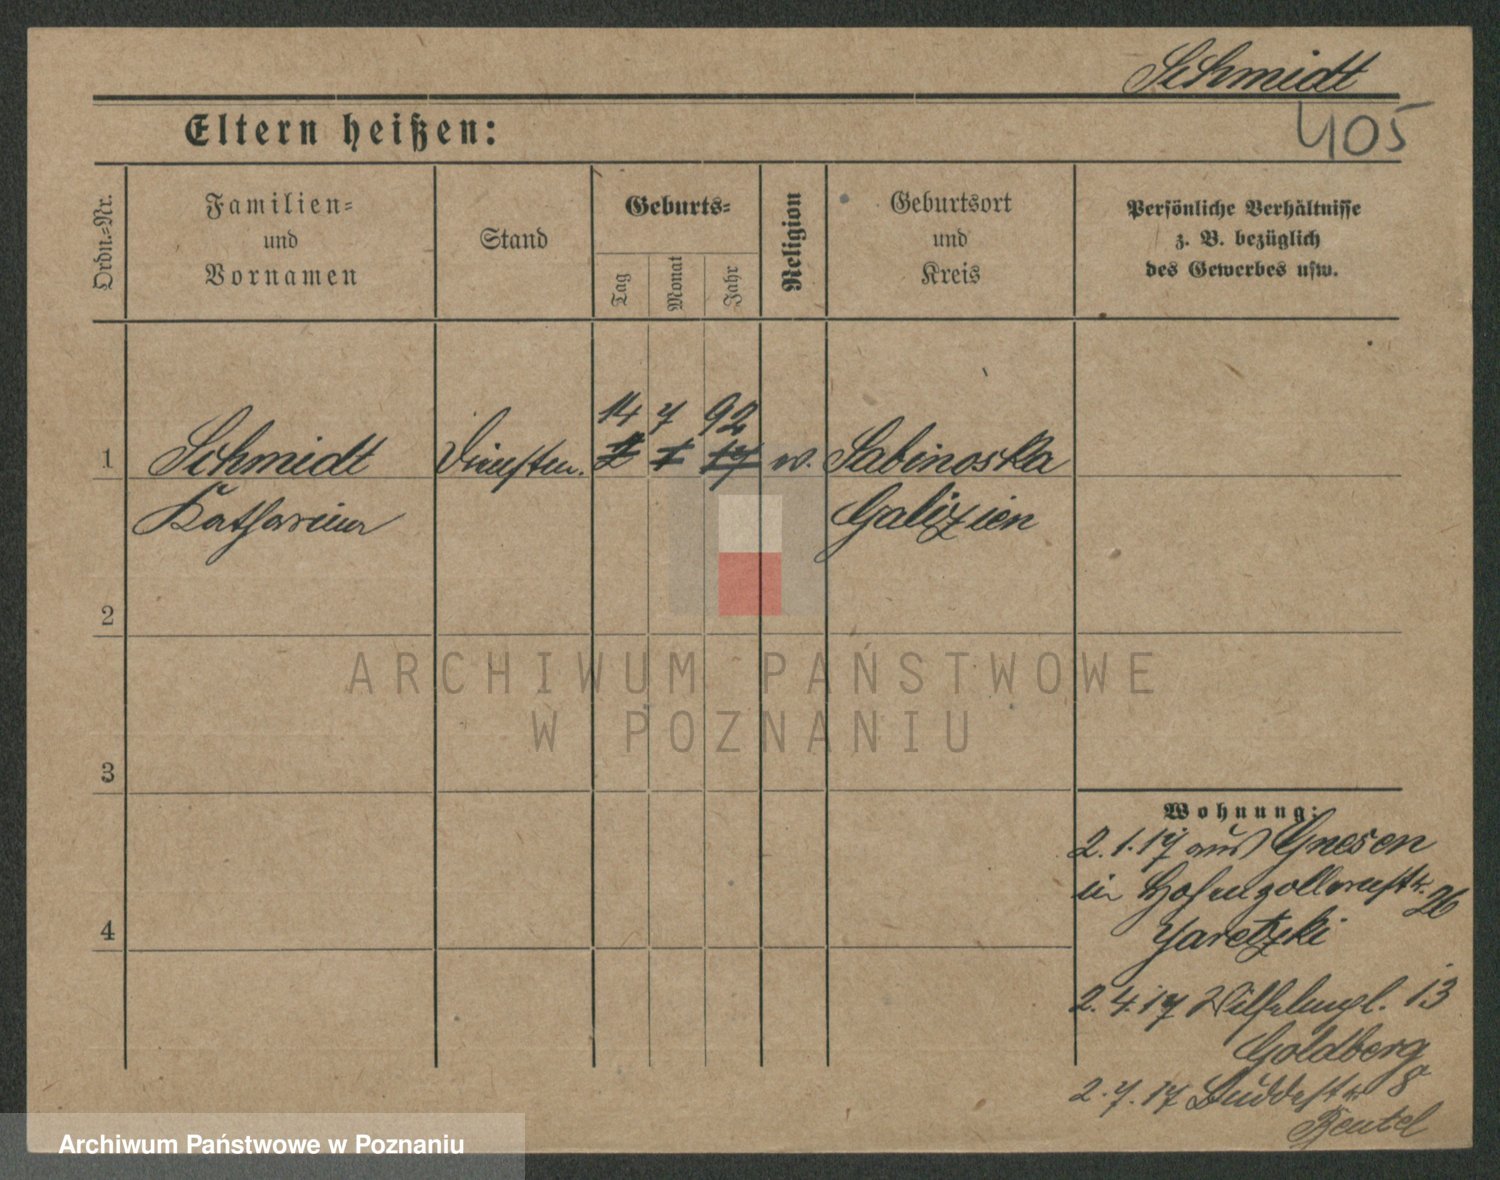 Schmidt
405
Eltern heißen:
Ordn.-Nr.
Familien-
und
Vornamen
Stand
Geburts-
Tag
Monat
Jahr
Religion
Geburtsort
und
Kreis
Persönliche Verhältnisse
z. B. bezüglich
des Gewerbes usw.
14 7 92
1 Schmidt w. Sabinoska
Katharina Galizien
2
3
4
ARCHIWUM PAŃSTWOWE
W POZNANIU
Wohnung:
2.1.17 aus Gnesen
in Hohenzollernstr. 26
Jaretzki
2.4.17 Wilhelmpl. 13
Goldberg
2.7.17 Buddestr 8
Beutel
Archiwum Państwowe w Poznaniu